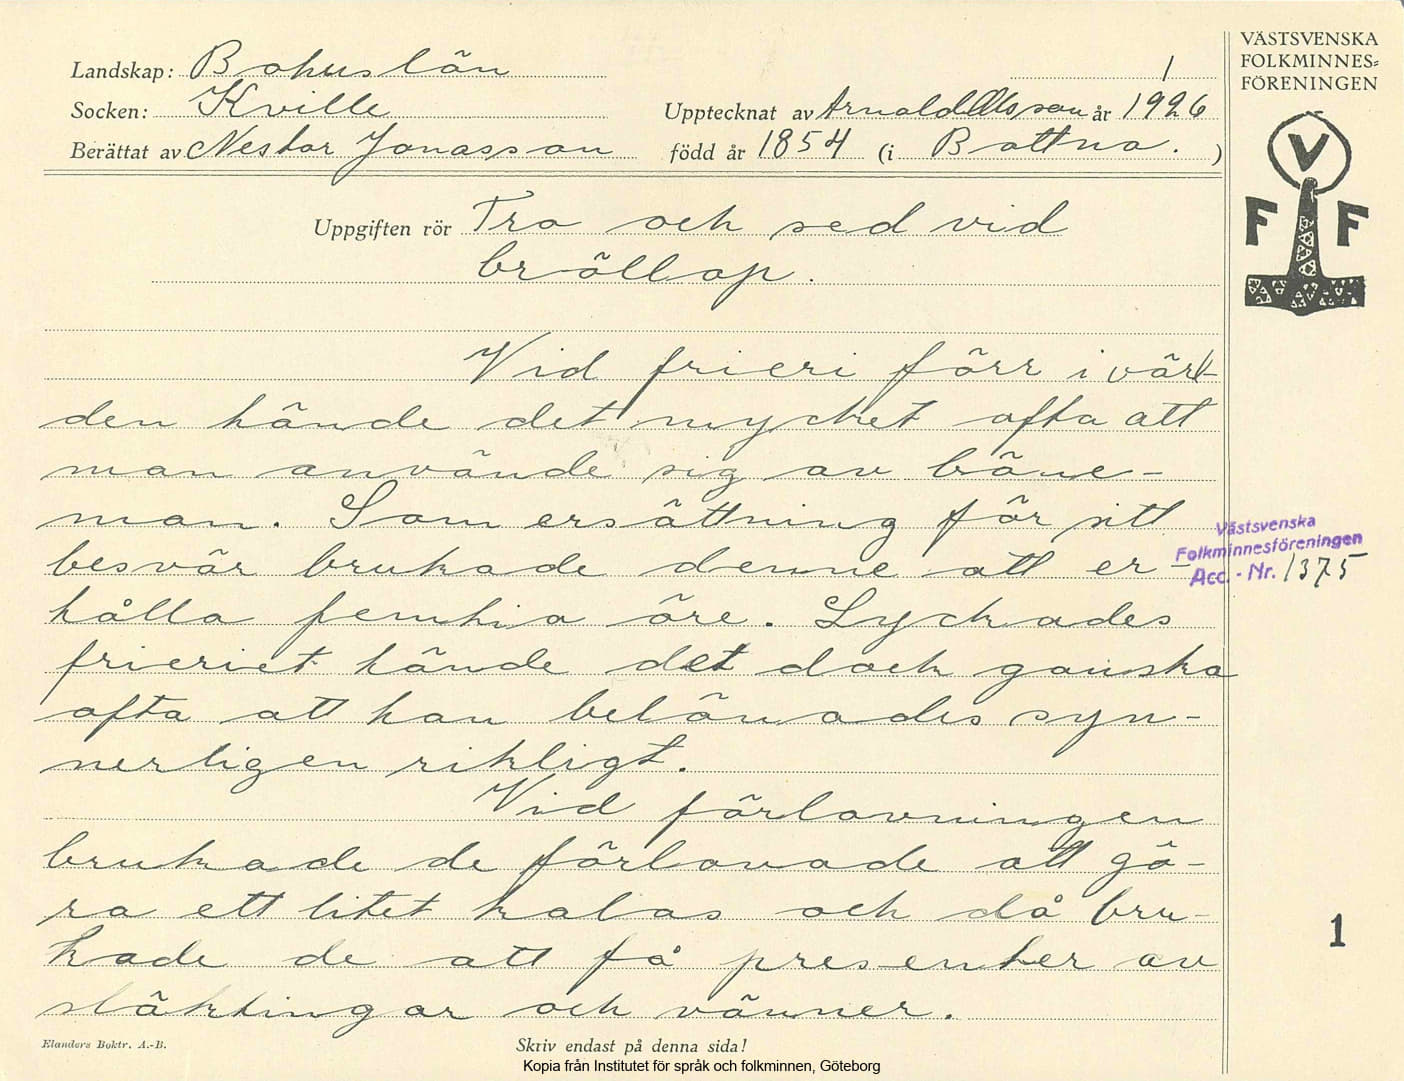 VÄSTSVENSKA
FOLKMINNES=
FÖRENINGEN
V
F F
Landskap: Bohuslän
1
Socken: Kville
Upptecknat av Arnold Olsson år 1926
Berättat av Nestor Jonasson
född år 1854 (i Bottna. )
Uppgiften rör Tro och sed vid
bröllop.
Vid frieri förr i värl-
den hände det mycket ofta att
man använde sig av böne-
man. Som ersättning för sitt
besvär brukade denne att er-
hålla femtio öre. Lyckades
frieriet hände det dock ganska
ofta att han belönades syn-
nerligen rikligt.
Vid förlovningen
brukade de förlovade att gö-
ra ett litet kalas och då bru-
kade de att få presenter av
släktingar och vänner.
Västsvenska
Folkminnesföreningen
Acc. - Nr. 1375
1
Elanders Boktr. A.-B.
Skriv endast på denna sida!
Kopia från Institutet för språk och folkminnen, Göteborg